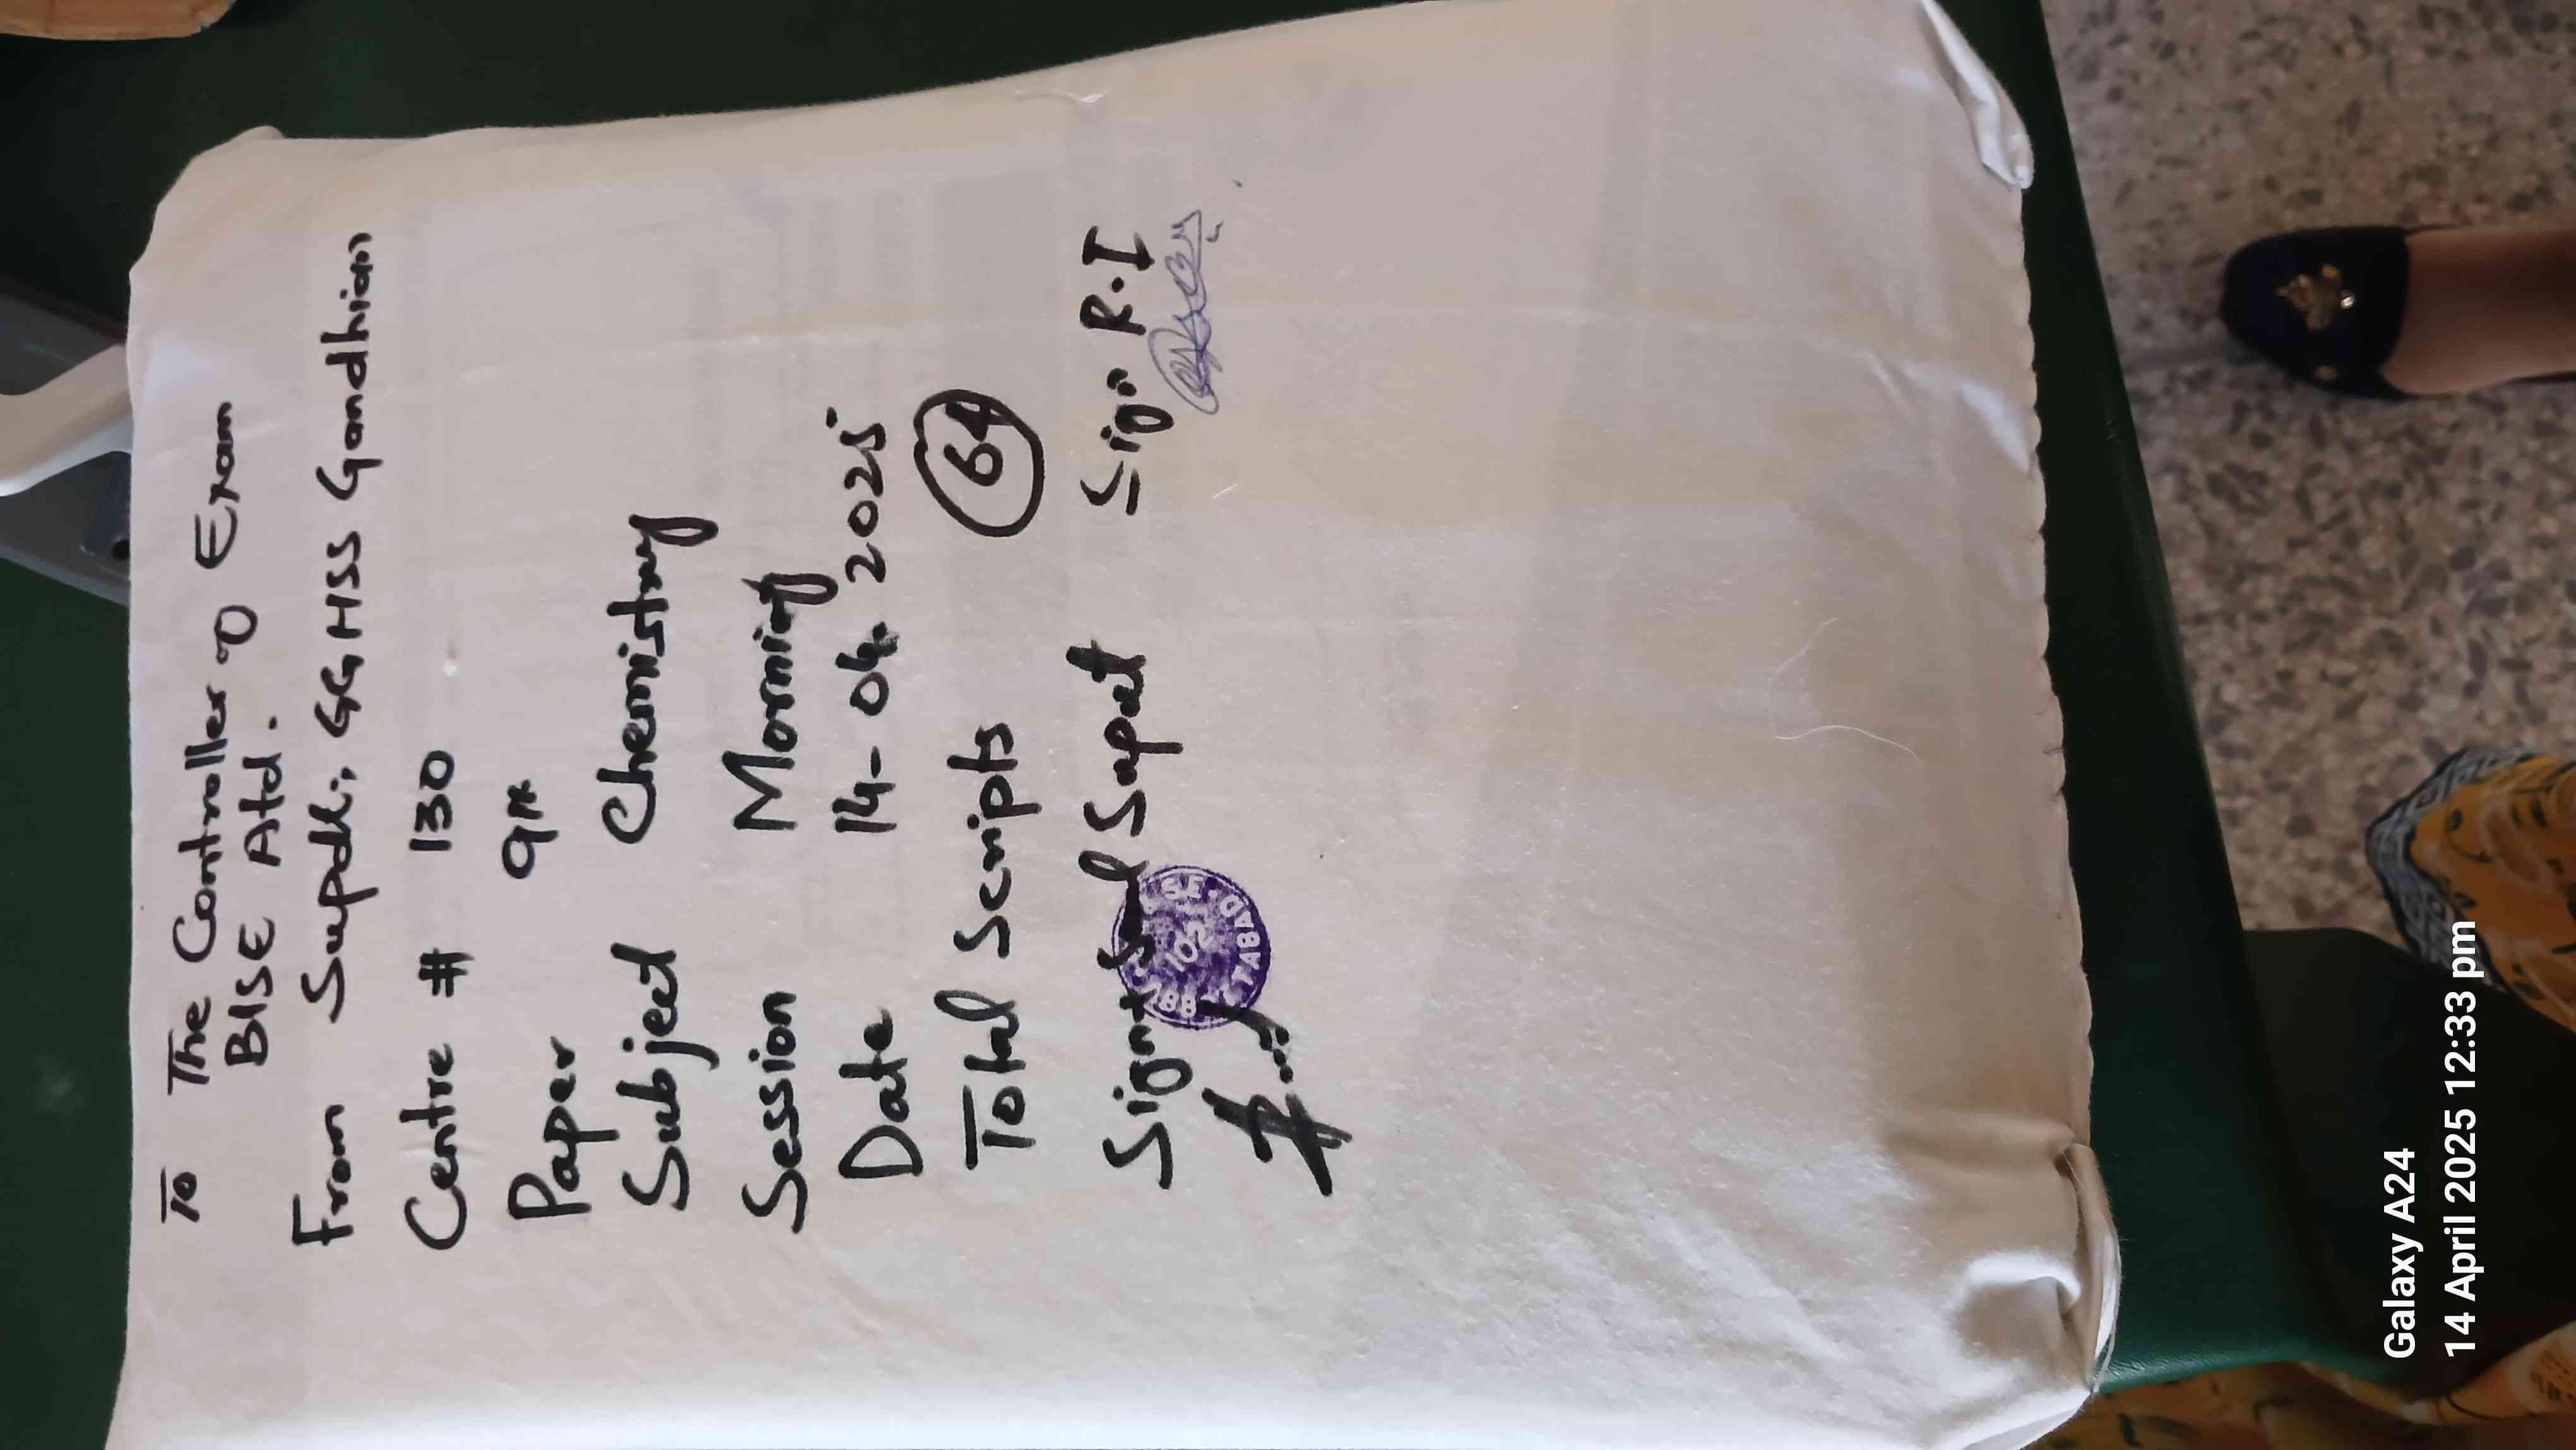 To The Controller of Exam
BISE Atd.
From Supdt; GGHSS Gandhian
Centre # 130
Paper 9th
Subject Chemistry
Session Morning
Date 14-04-2025
Total Scripts 64
Sign Supdt Sign R.I
ABBOTTABAD
Galaxy A24
14 April 2025 12:33 pm